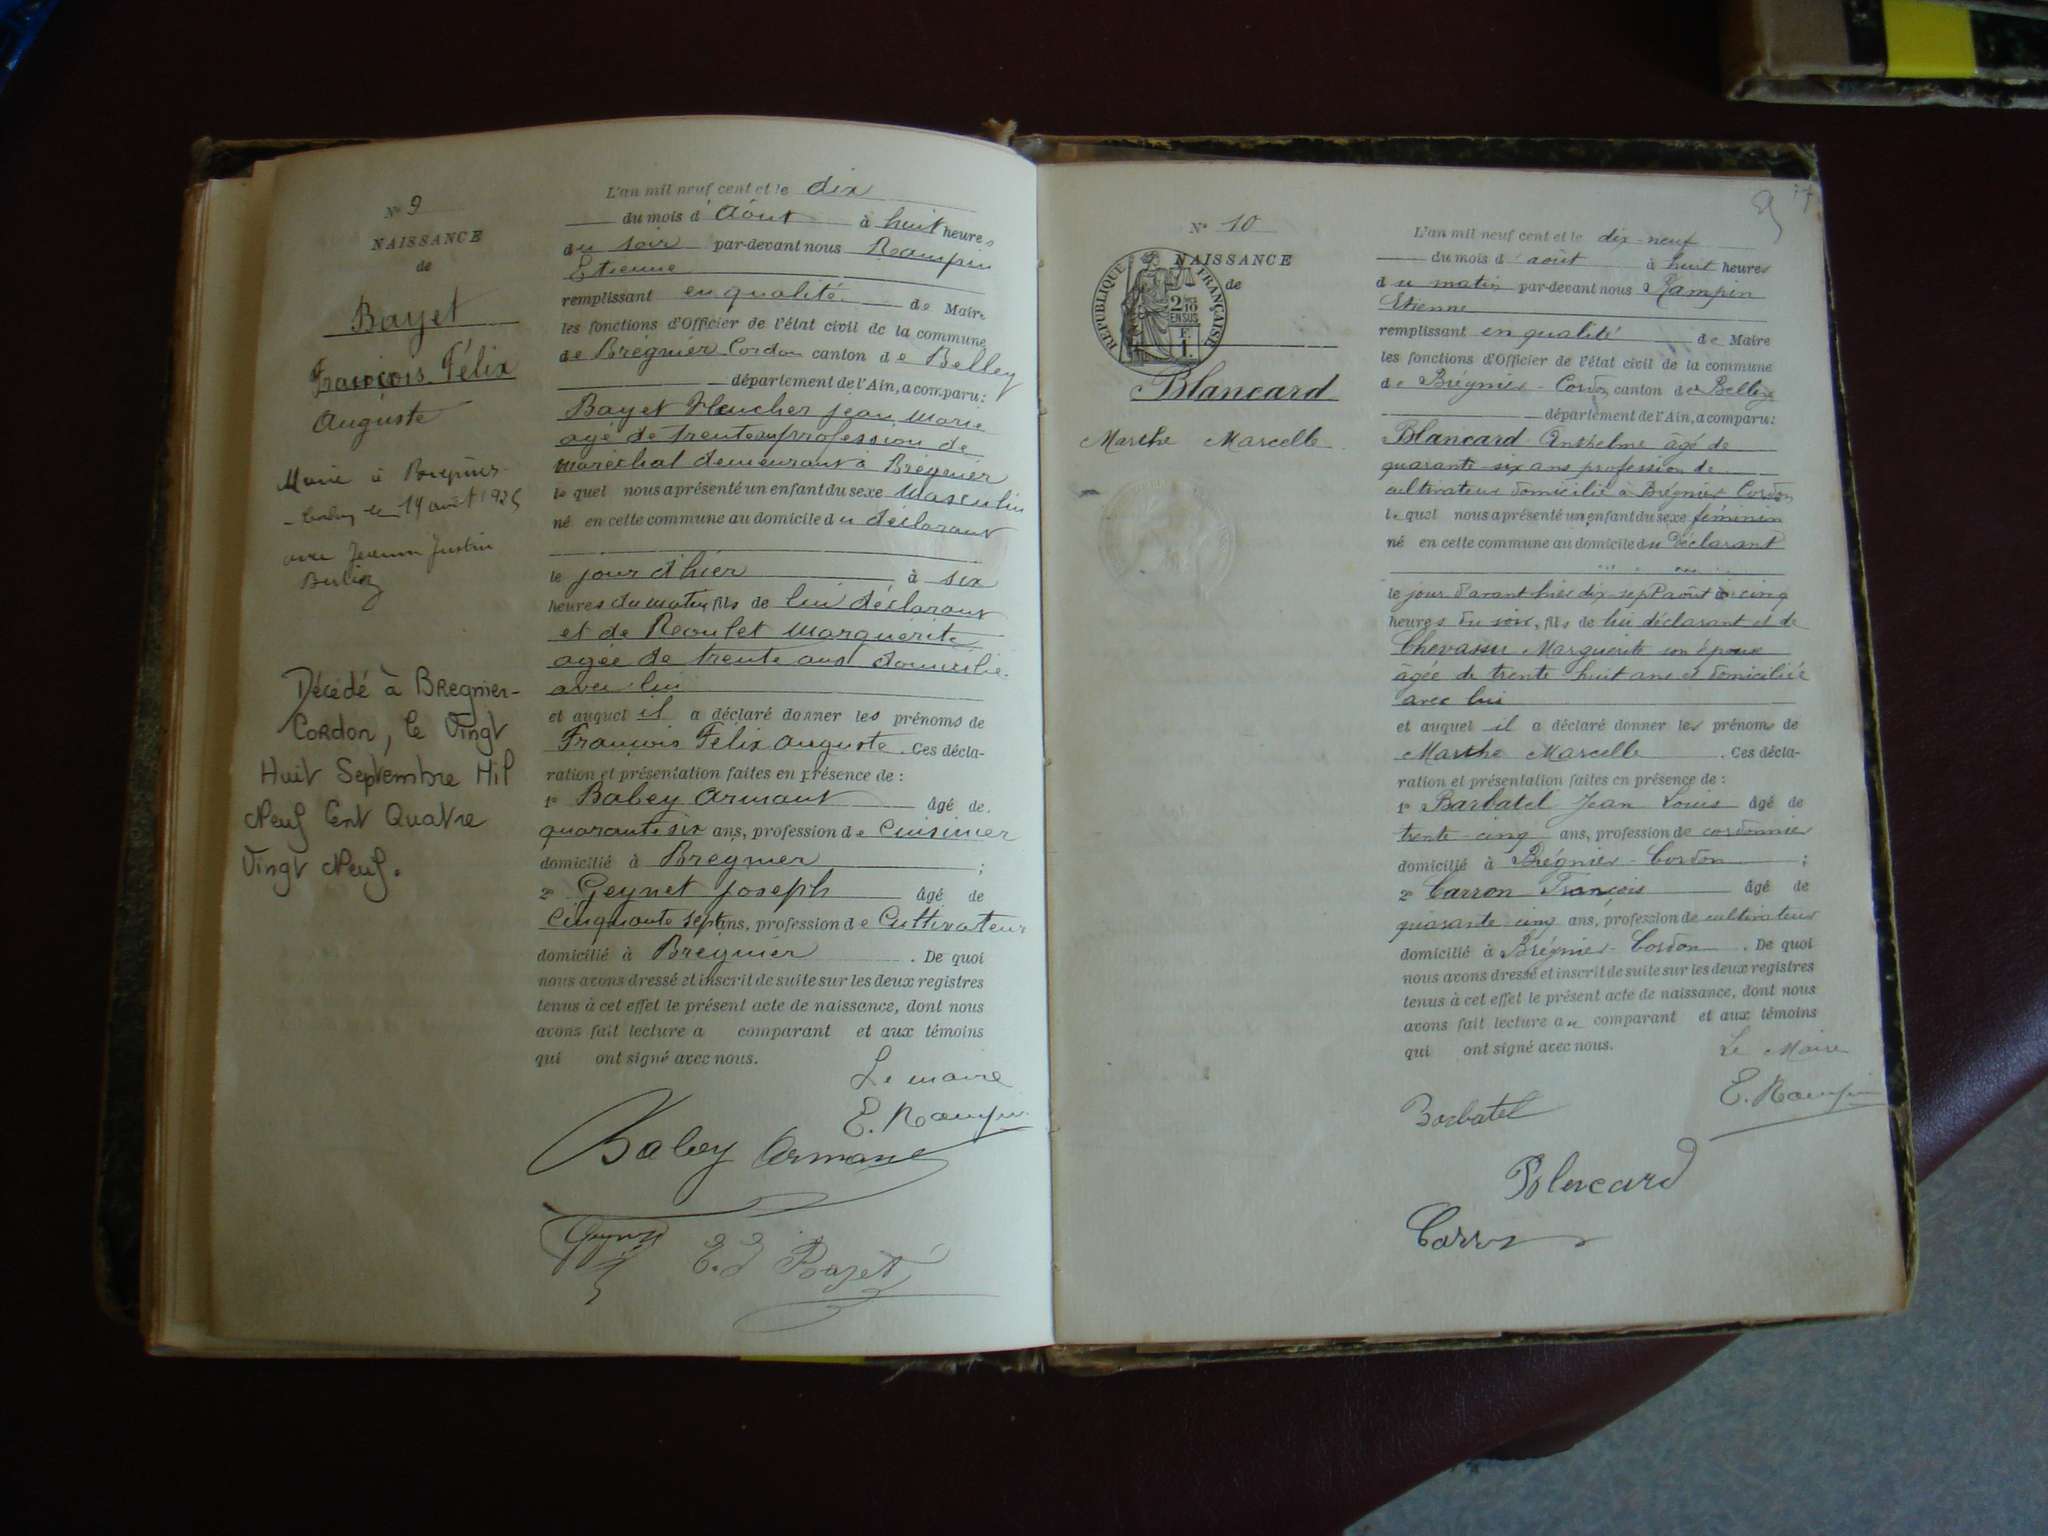 N° 9
NAISSANCE
de
Bayet
François Félix
Auguste
Marié à Brégnier-
-Cordon le 19 août 1925
avec Jeanne Justine
Berlioz
Décédé à Bregnier-
Cordon, le Vingt
Huit Septembre Mil
Neuf Cent Quatre
Vingt Neuf.
L'an mil neuf cent et le dix
du mois d'Aôut à huit heures
du soir par-devant nous Rampin
Etienne
remplissant en qualité de Maire
les fonctions d'Officier de l'état civil de la commune
de Brégnier Cordon canton de Belley
département de l'Ain, a comparu:
Bayet Jean Marie
agé de trente profession de
maréchal demeurant à Brégnier
lequel nous a présenté un enfant du sexe Masculin
né en cette commune au domicile du déclarant
le jour d'hier à six
heures du matin, fils de lui déclarant
et de Roulet Marguerite
agée de trente ans domicilié
avec lui
et auquel il a déclaré donner les prénoms de
François Félix Auguste. Ces décla-
ration et présentation faites en présence de :
1° Babey Armant âgé de
quarante six ans, profession de Cuisinier
domicilié à Bregnier ;
2° Geynet Joseph âgé de
Cinquante sept ans, profession de Cultivateur
domicilié à Bregnier. De quoi
nous avons dressé et inscrit de suite sur les deux registres
tenus à cet effet le présent acte de naissance, dont nous
avons fait lecture a comparant et aux témoins
qui ont signé avec nous.
Le maire
E. Rampin
Babey Armant
Geynet E. J Bayet
17
N° 10
NAISSANCE
de
RÉPUBLIQUE FRANÇAISE
2/10 EN SUS
F. 1.
Blancard
Marthe Marcelle
L'an mil neuf cent et le dix-neuf
du mois d'août à huit heures
du matin par-devant nous Rampin
Etienne
remplissant en qualité de Maire
les fonctions d'Officier de l'état civil de la commune
de Brégnier-Cordon canton de Belley
département de l'Ain, a comparu:
Blancard Anthelme âgé de
quarante-six ans profession de
cultivateur domicilié à Brégnier Cordon
lequel nous a présenté un enfant du sexe féminin
né en cette commune au domicile du Déclarant
le jour d'avant hier dix-sept août à cinq
heures du soir, fils de lui déclarant et de
Chevassu Marguerite son épouse
âgée de trente huit ans et domiciliée
avec lui
et auquel il a déclaré donner les prénoms de
Marthe Marcelle. Ces décla-
ration et présentation faites en présence de :
1° Barbatel Jean Louis âgé de
trente-cinq ans, profession de cordonnier
domicilié à Brégnier-Cordon ;
2° Carron François âgé de
quarante-cinq ans, profession de cultivateur
domicilié à Brégnier-Cordon. De quoi
nous avons dressé et inscrit de suite sur les deux registres
tenus à cet effet le présent acte de naissance, dont nous
avons fait lecture au comparant et aux témoins
qui ont signé avec nous.
Le Maire
E. Rampin
Barbatel
Blancard
Carron